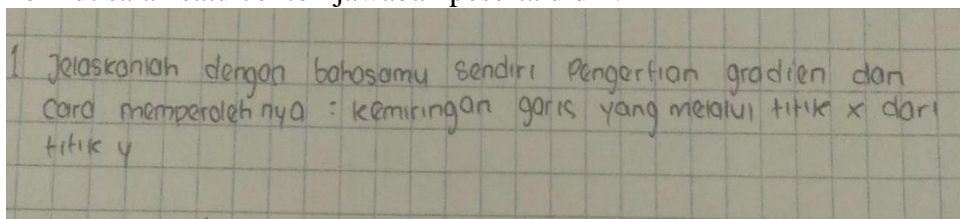 1 Jelaskanlah dengan bahasamu sendiri pengertian gradien dan
cara memperoleh nya : kemiringan garis yang melalui titik x dari
titik y